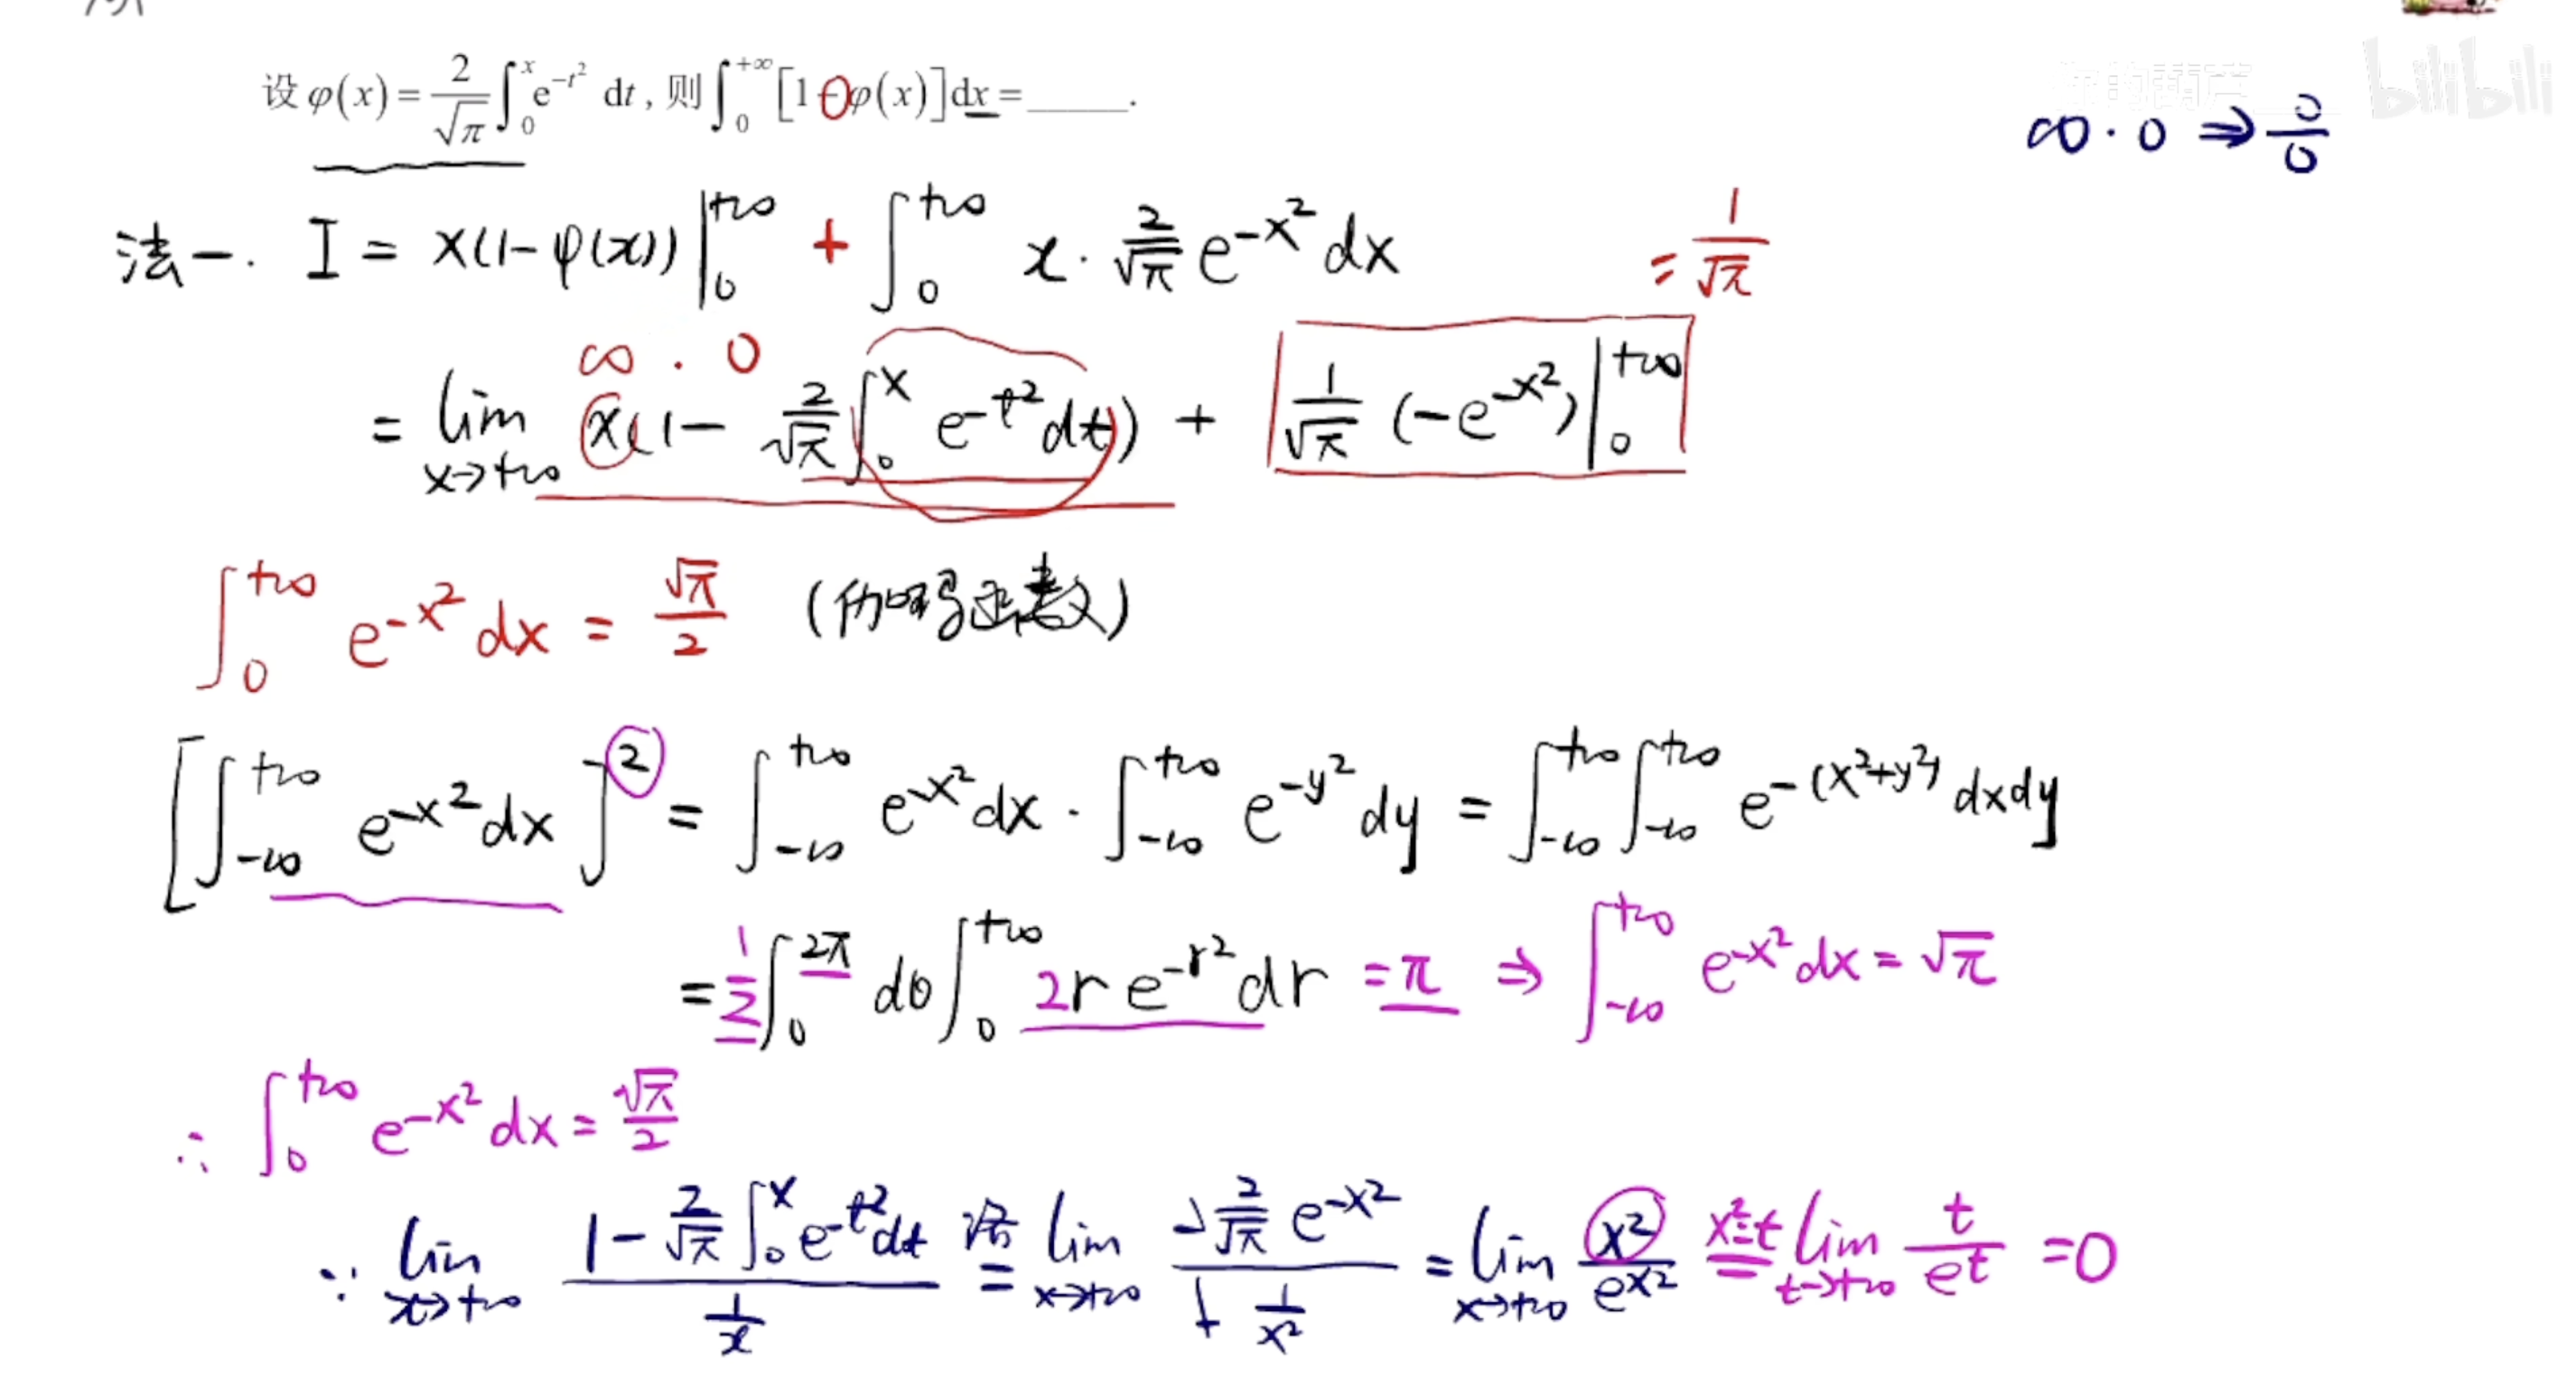 设 φ(x) = 2/√π ∫₀ˣ e^(-t²) dt , 则 ∫₀^(+∞) [1-φ(x)]dx = ______.
bilibili
∞·0 ⇒ 0/0
法一. I = x(1-φ(x))|₀^(+∞) + ∫₀^(+∞) x·2/√π e^(-x²) dx = 1/√π
∞ · 0
= lim_(x→+∞) x(1- 2/√π ∫₀ˣ e^(-t²) dt) + 1/√π (-e^(-x²))|₀^(+∞)
∫₀^(+∞) e^(-x²) dx = √π/2 (伽码函数)
[∫_(-∞)^(+∞) e^(-x²) dx]² = ∫_(-∞)^(+∞) e^(-x²) dx · ∫_(-∞)^(+∞) e^(-y²) dy = ∫_(-∞)^(+∞) ∫_(-∞)^(+∞) e^(-(x²+y²)) dxdy
= 1/2 ∫₀^(2π) dθ ∫₀^(+∞) 2r e^(-r²) dr = π ⇒ ∫_(-∞)^(+∞) e^(-x²) dx = √π
∴ ∫₀^(+∞) e^(-x²) dx = √π/2
∵ lim_(x→+∞) (1 - 2/√π ∫₀ˣ e^(-t²) dt)/(1/x) 洛= lim_(x→+∞) (-2/√π e^(-x²))/(-1/x²) = lim_(x→+∞) x²/e^(x²) x²=t lim_(t→+∞) t/e^t = 0